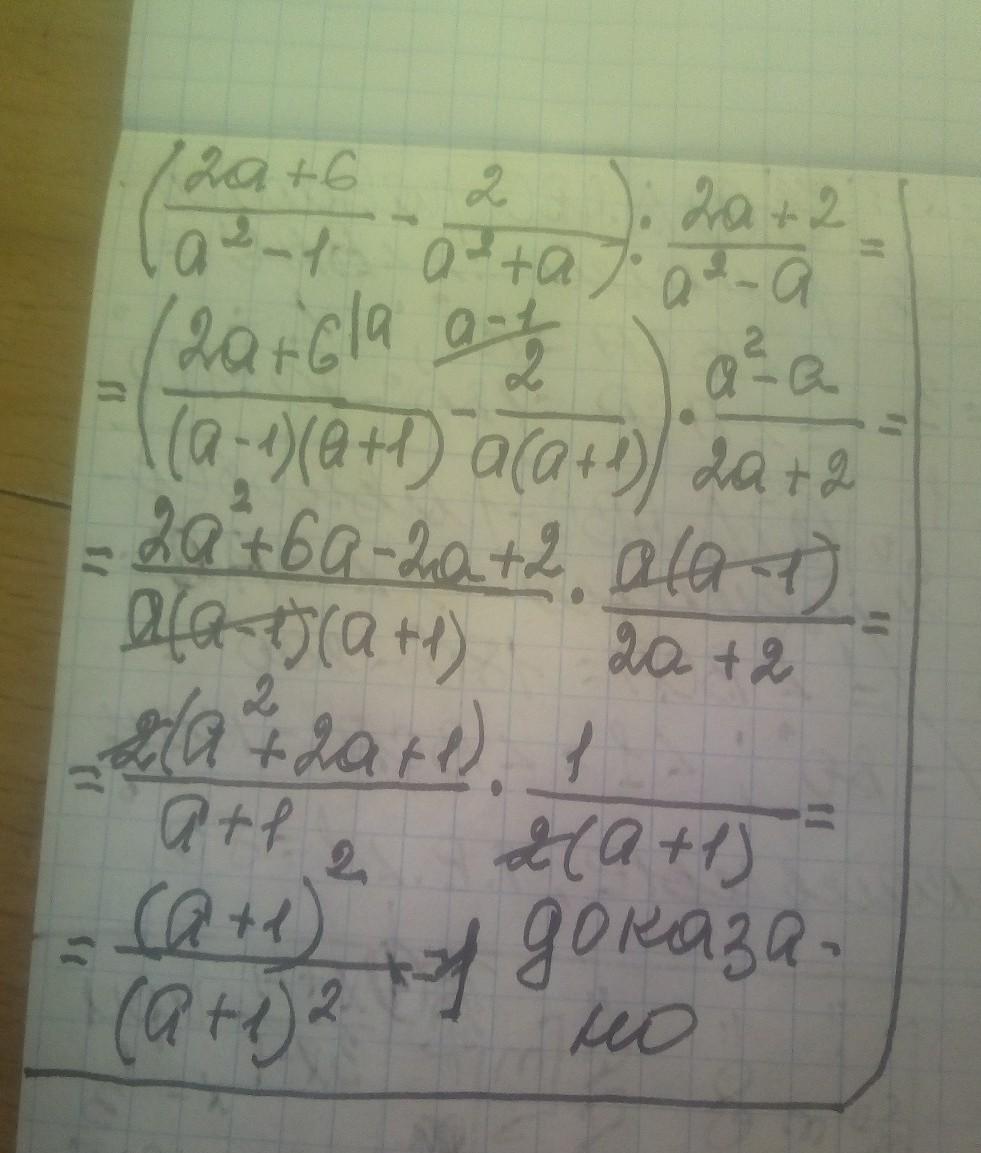 (2a+6/a²-1 - 2/a²+a) : 2a+2/a²-a =
= (2a+6|a/(a-1)(a+1) - a-1 2/a(a+1)) · a²-a/2a+2 =
= 2a²+6a-2a+2/a(a-1)(a+1) · a(a-1)/2a+2 =
= 2(a²+2a+1)/a+1 · 1/2(a+1) =
= (a+1)²/(a+1)² = 1 доказа-
но